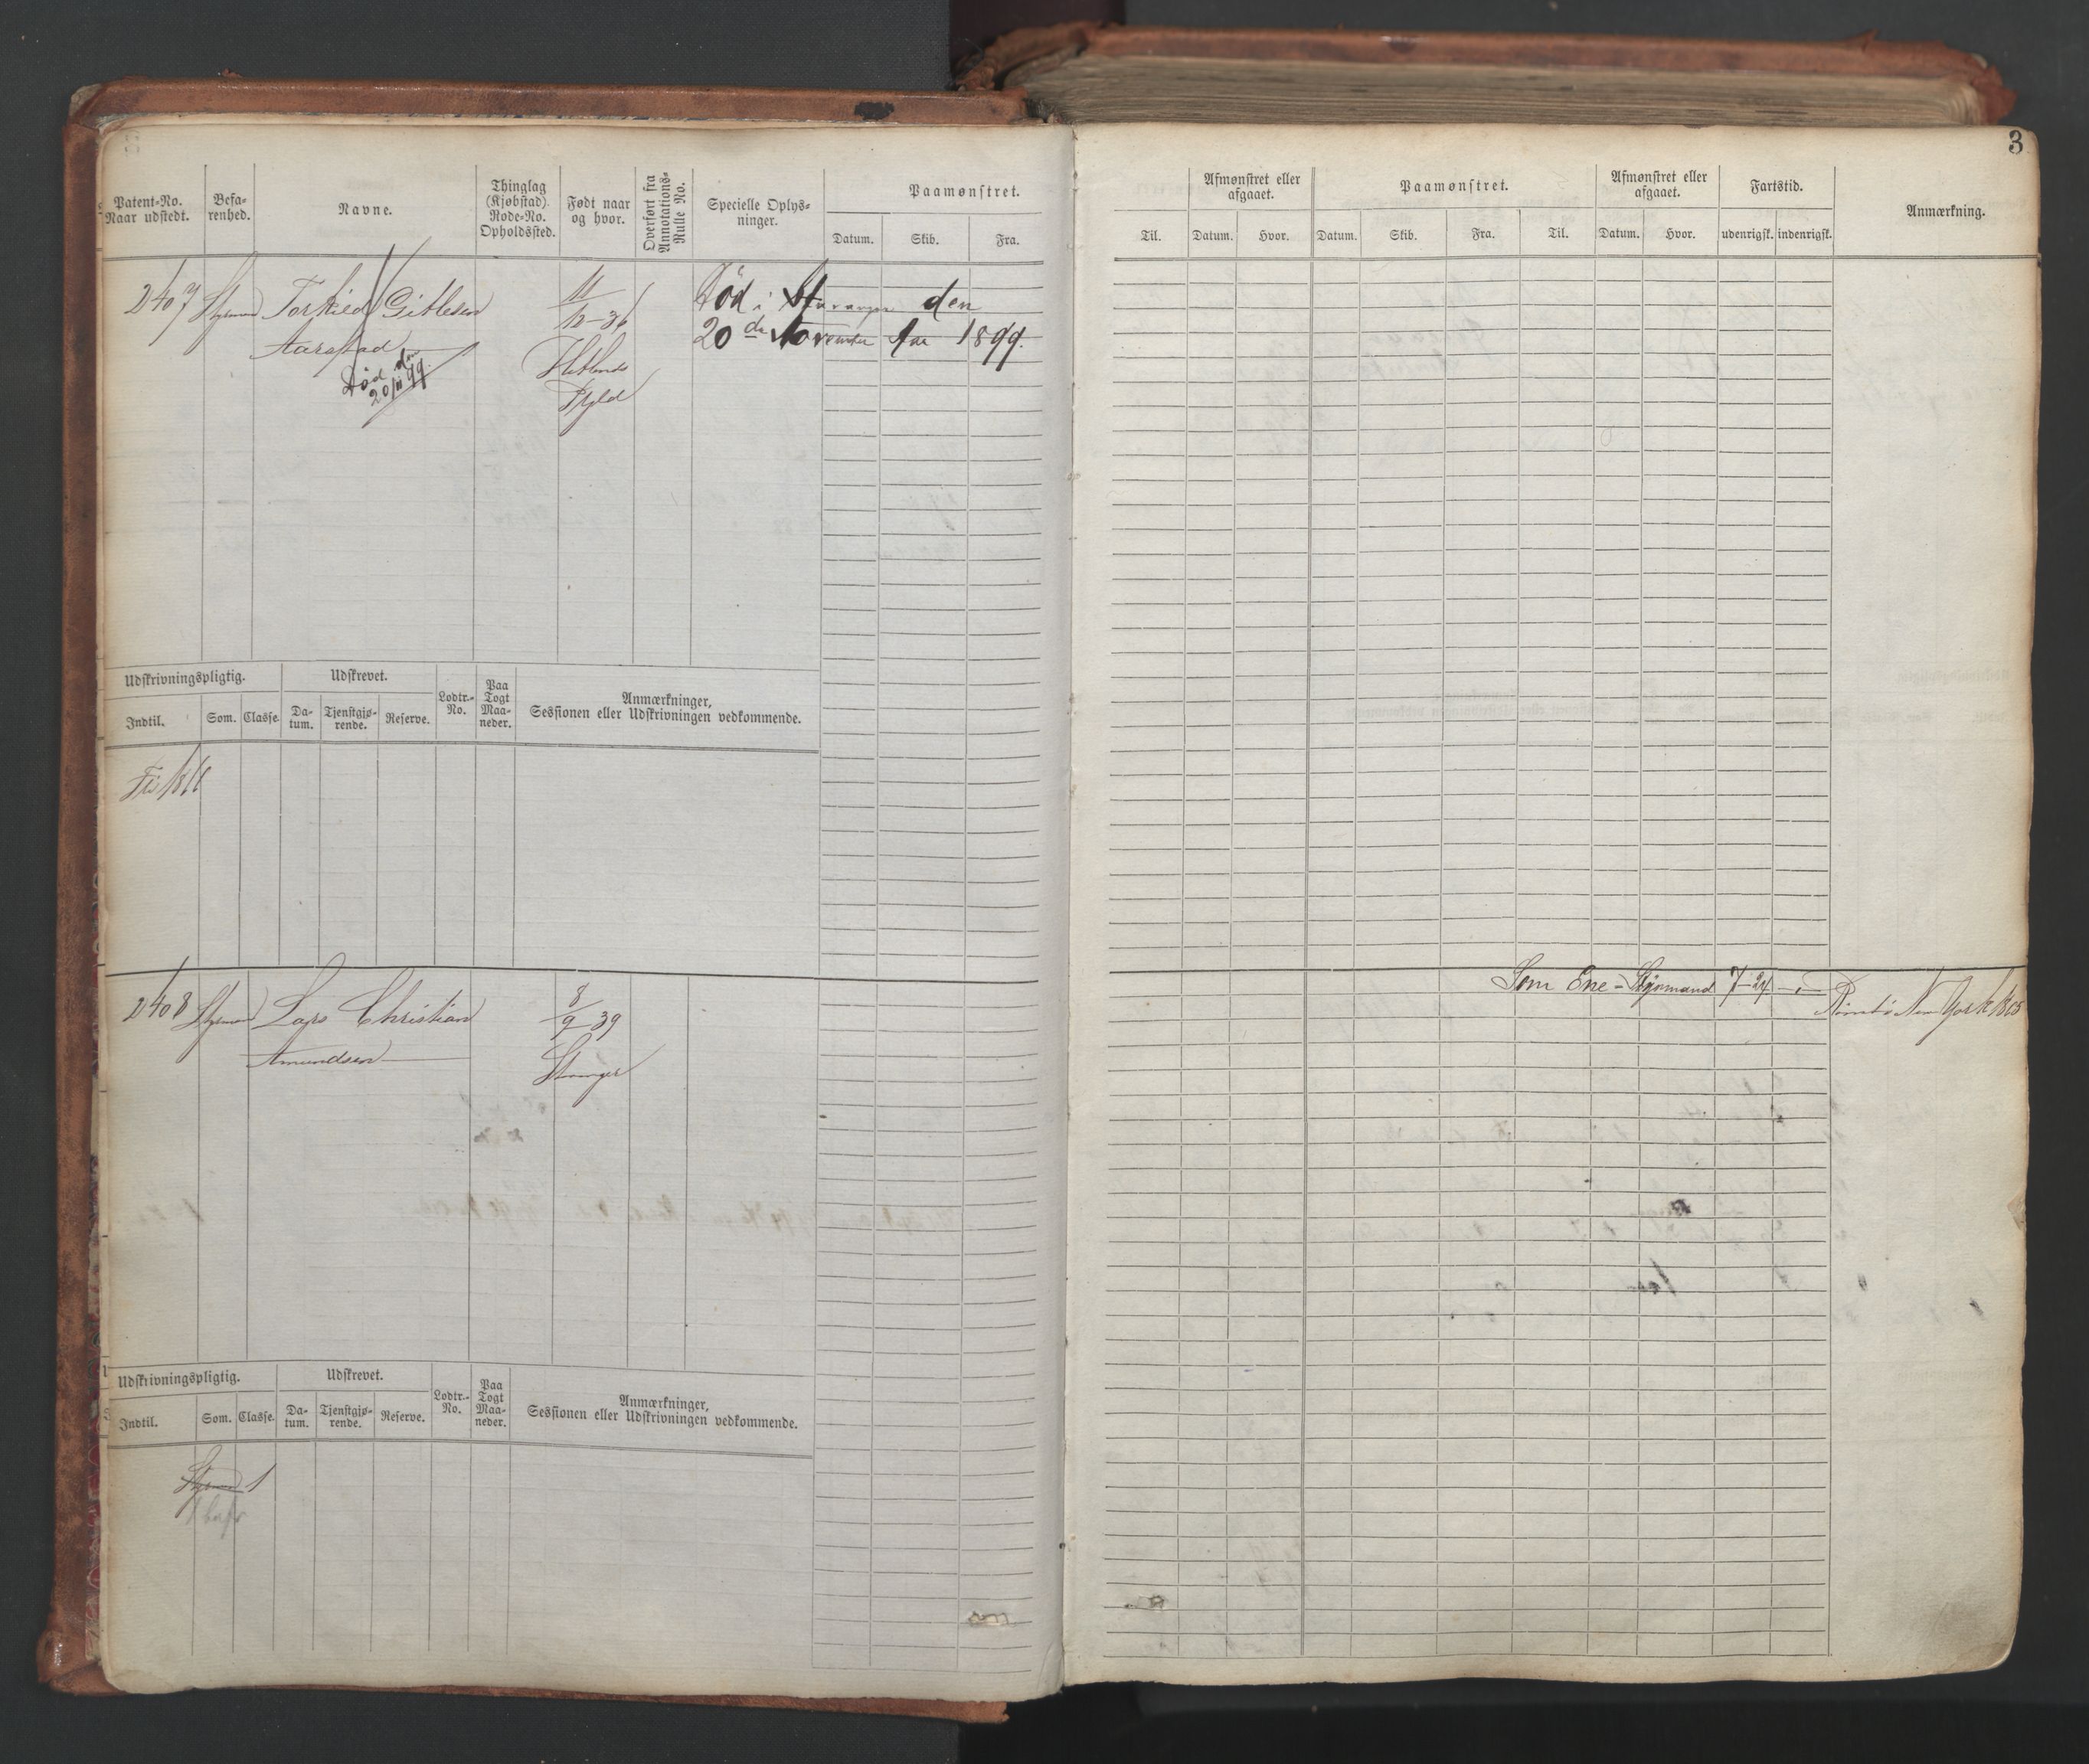 3
Patent-No. Naar udstedt.
Befarenhed.
Navne.
Thinglag (Kjøbstad). Rode-No. Opholdssted.
Født naar og hvor.
Overført fra Annotations-Rulle No.
Specielle Oplysninger.
Paamønstret.
Datum. Skib. Fra. Til.
Afmønstret eller afgaaet.
Datum. Hvor.
Paamønstret.
Datum. Skib. Fra. Til.
Afmønstret eller afgaaet.
Datum. Hvor.
Fartstid.
udenrigsk. indenrigsk.
Anmærkning.
2407 Styrmand Torkild Gitlesen
Aarstad
Død den
20/11 99
11/12-36
Død i Stavanger den
20de November Aar 1899.
Udskrivningspligtig.
Indtil. Som. Classe.
Udskrevet.
Datum. Tjenstgjørende. Reserve.
Lodtr.-No.
Paa Togt Maaneder.
Anmærkninger,
Sessionen eller Udskrivningen vedkommende.
Fri
2408 Styrmand Lars Christian
Amundsen
8/9 39
Som Ene-Styrmand 7-24
Rømt i New York
Udskrivningspligtig.
Indtil. Som. Classe.
Udskrevet.
Datum. Tjenstgjørende. Reserve.
Lodtr.-No.
Paa Togt Maaneder.
Anmærkninger,
Sessionen eller Udskrivningen vedkommende.
Styrmand 1